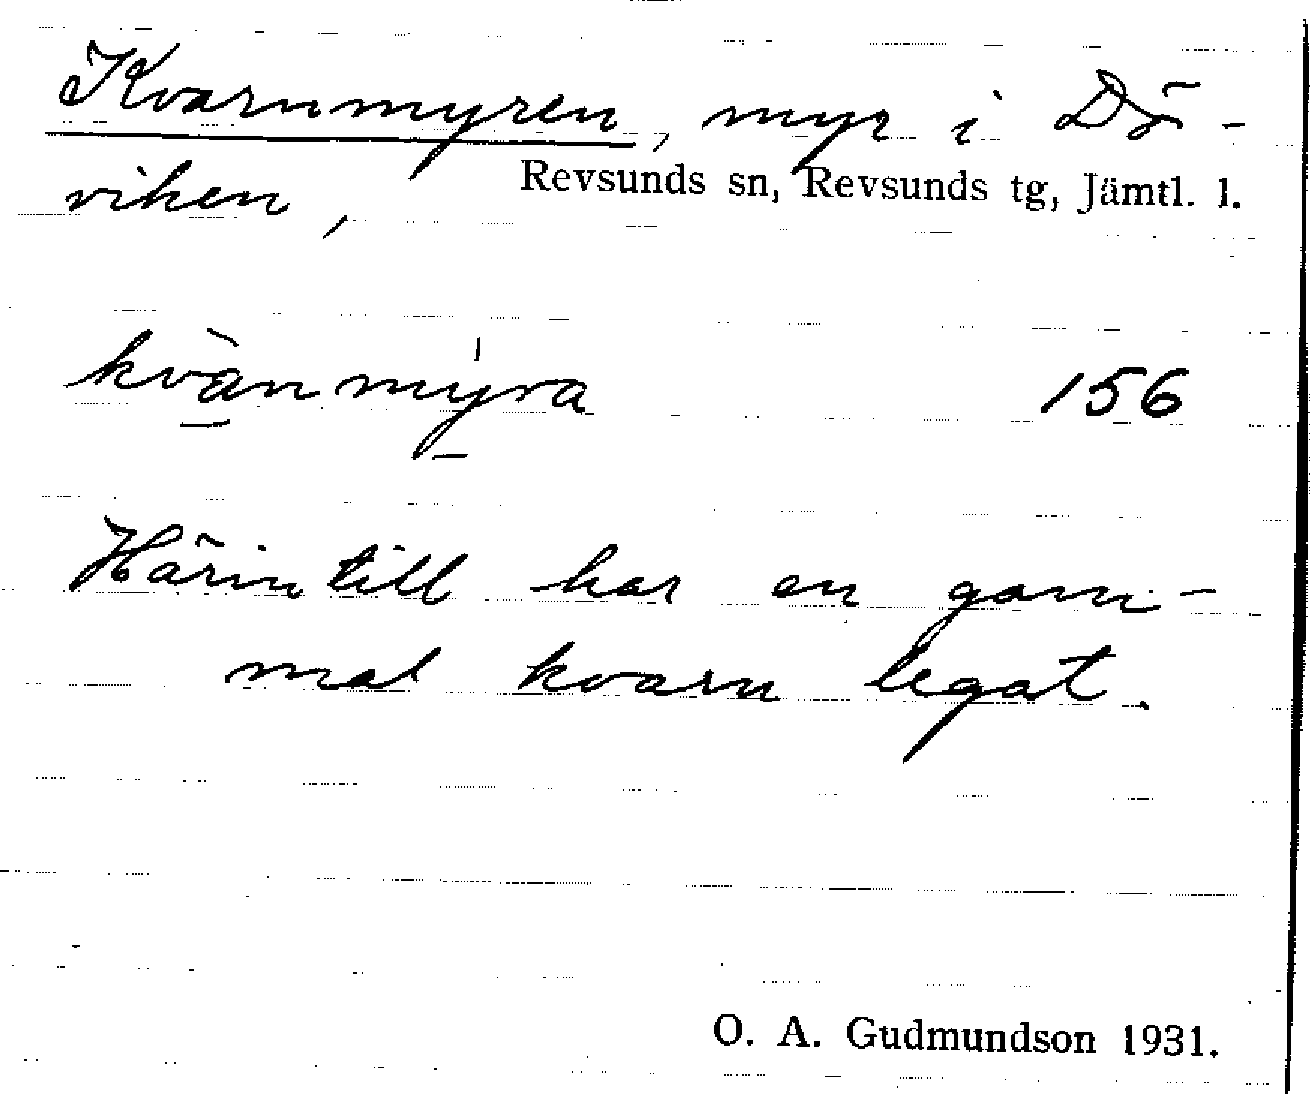 Kvarnmyren, myr i Dö-
viken,
Revsunds sn, Revsunds tg, Jämtl. l.
kvä̀nmýra 156
Härintill har en gam-
mal kvarn legat.
O. A. Gudmundson 1931.